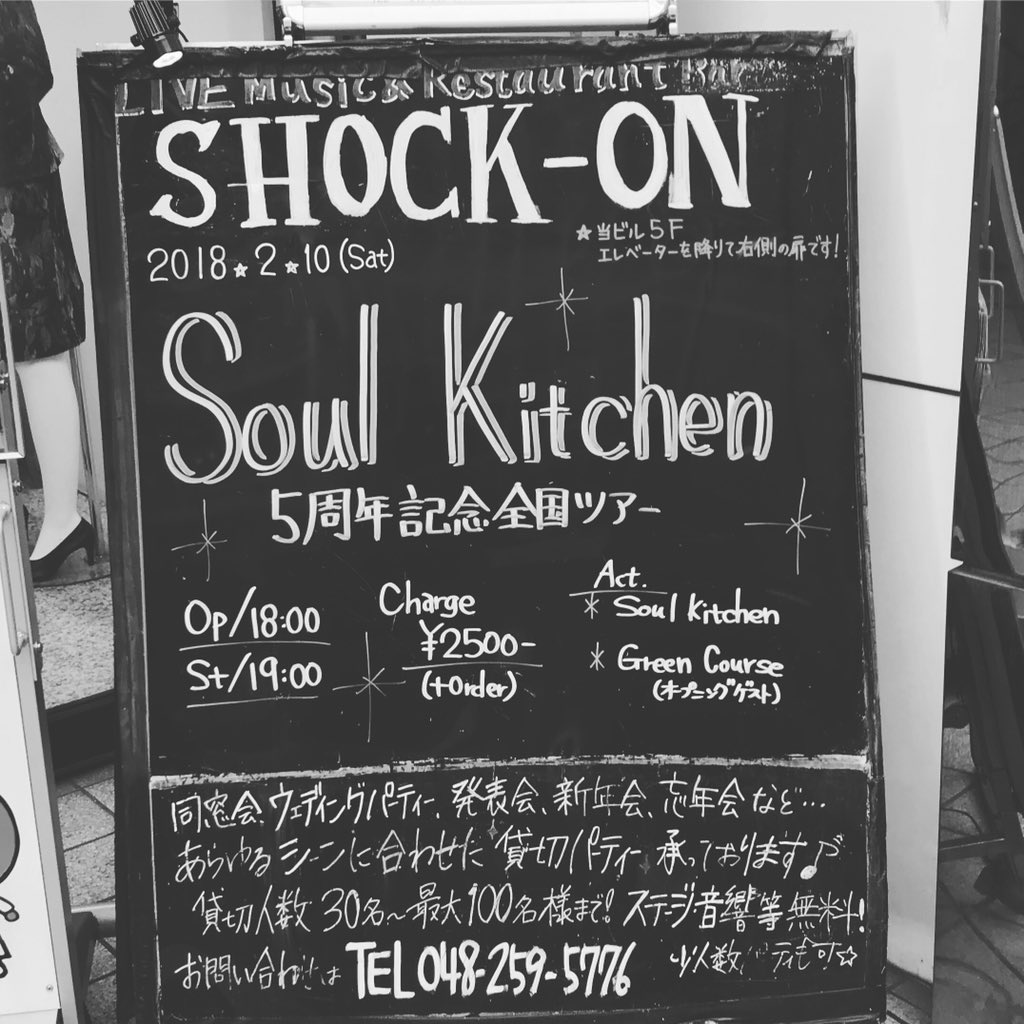 LIVE Music & Restaurant Bar
SHOCK-ON
2018☆2☆10(Sat)
★当ビル5F
エレベーターを降りて右側の扉です!
Soul Kitchen
5周年記念全国ツアー
Op/18:00
St/19:00
Charge
¥2500-
(+order)
Act.
* Soul Kitchen
* Green Course
(オープニングゲスト)
同窓会、ウェディングパーティー、発表会、新年会、忘年会など…
あらゆるシーンに合わせた貸切パーティー承っております♪
貸切人数30名~最大100名様まで!ステージ音響等無料!
お問い合わせは TEL 048-259-5776 少人数パーティも可☆